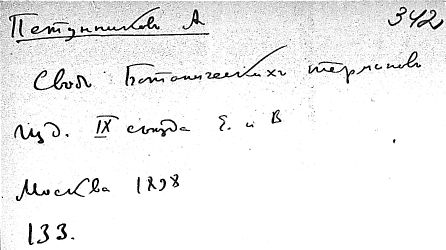 Петунников А 342
Сводъ Ботаническихъ терминовъ
Изд. IX съезда Е. и В
Москва 1898
133.